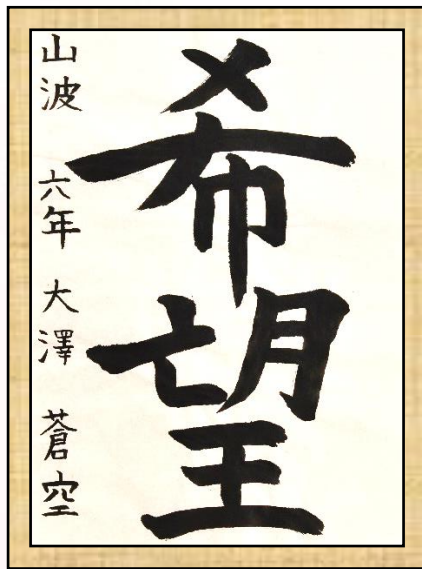 希望
山波 六年 大澤 蒼空